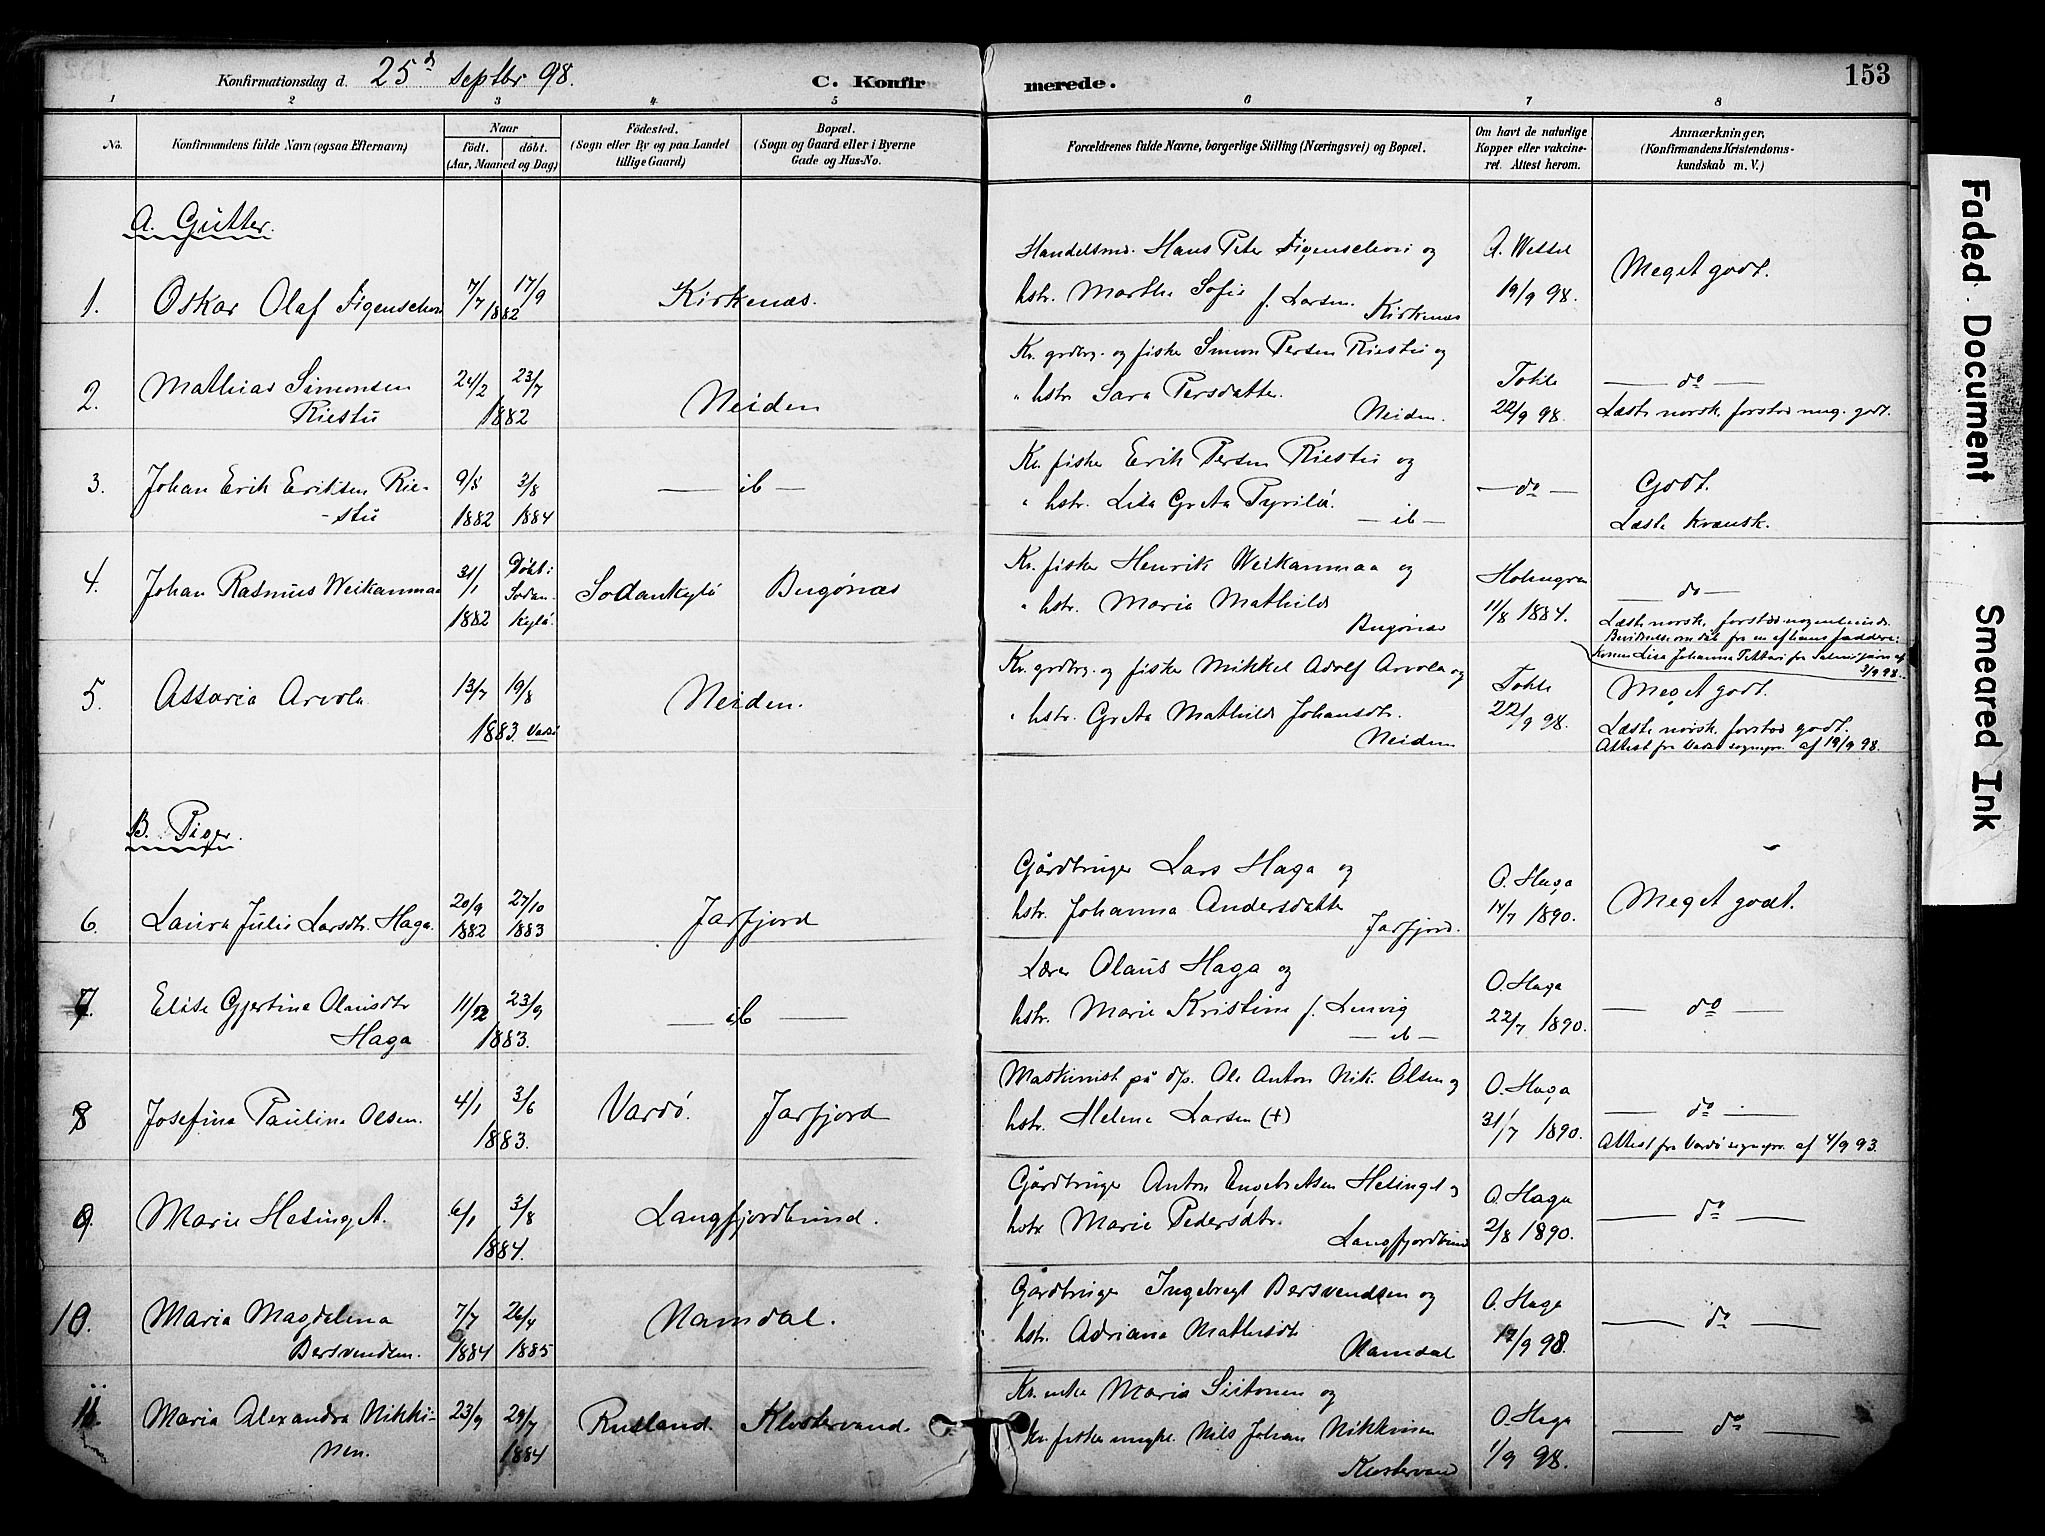 Konfirmationsdag d. 25d Septbr 98.
C. Konfirmerede.
153
1 2 3 4 5 6 7 8
No.
Konfirmandens fulde Navn (ogsaa Efternavn)
Naar
födt. döbt.
(Aar, Maaned og Dag)
Födested.
(Sogn eller By og paa Landet
tillige Gaard)
Bopæl.
(Sogn og Gaard eller i Byerne
Gade og Hus-No.
Forældrenes fulde Navne, borgerlige Stilling (Næringsvei) og Bopæl.
Om havt de naturlige
Kopper eller vakcine-
ret. Attest herom.
Anmærkninger,
(Konfirmandens Kristendoms-
kundskab m. V.)
A. Gutter.
1. Oskar Olaf Figenschou
7/7 1882 17/9
Kirkenæs.
Handelsmd. Hans Peter Figenschou og
hstr. Marthe Sofie f. Larsen. Kirkenæs
A. Wessel
19/9 98.
Meget godt.
2. Mathias Simonsen
Riestu
24/2 23/7
1882
Neiden
Kv. grdbrg. og fisker Simon Persen Riestu og
" hstr. Sara Persdatter.
Neiden.
Tokle
22/9 98.
— do —
Læste norsk, forstod nog. godt.
3. Johan Erik Eriksen Rie-
-stu
9/8 3/8
1882 1884
— ib —
Kv. fisker Erik Persen Riestu og
" hstr. Lisa Greta Pyrilö.
— ib —
— do —
Godt.
Læste kvænsk.
4. Johan Rasmus Weikanmaa
31/1 Döbt i
Sodan-
1882 kylö.
Sodankylö
Bugönæs
Kv. fisker Henrik Weikanmaa og
" hstr. Maria Mathilde
Bugönæs
Holmgren
11/8 1884.
— do —
Læste norsk, forstod
Kvæn Lisa Johanna
3/9 98.
5. Assaria Arvola
13/7 19/8
1883. Vardö
Neiden.
Kv. grdbrg. og fisker Mikkel Adolf Arvola og
" hstr. Greta Mathilde Johansdtr.
Neiden
Tokle
22/9 98.
Meget godt.
Læste norsk, forstod godt.
Attest fra Vardö sognepr. af 19/9 98.
B. Piger.
6. Laura Julie Larsdtr. Haga.
20/9 27/10
1882 1883
Jarfjord
Gårdbruger Lars Haga og
hstr. Johanna Andersdatter
Jarfjord.
O. Haga
14/7 1890.
Meget godt.
7. Elise Gjertina Olausdtr
Haga
11/2 23/9
1883.
— ib —
Lærer Olaus Haga og
hstr. Marie Kristine f. Lenvig
— ib —
O. Haga
22/7 1890.
— do —
8 Josefine Pauline Olsen.
4/1 3/6
1883.
Vardö.
Jarfjord
Maskinist på d/s. Ole Anton Nik. Olsen og
hstr. Helene Larsen (+)
O. Haga
31/7 1890.
— do —
Attest fra Vardö sognepr. af 4/9 93.
9. Marie Hesinget.
6/1 3/8
1884.
Langfjordbund.
Gårdbruger Anton Engebretsen Hesinget og
hstr Marie Pedersdtr.
Langfjordbund
O. Haga
2/8 1890.
— do —
10. Maria Magdalena
Bersvendsen.
7/7 26/4
1884 1885
Namdal.
Gårdbruger Ingebregt Bersvendsen og
hstr. Adriana Mathisdtr
Namdal
O. Haga
17/9 98.
— do —
11. Maria Alexandra Nikki-
nen.
23/9 29/7
1884
Rusland.
Klostervand.
Kv. enke Maria Siitonen og
Kv. fisker Nils Johan Nikkinen
Klostervand
O. Haga
1/9 98.
— do —
Faded Document
Smeared Ink